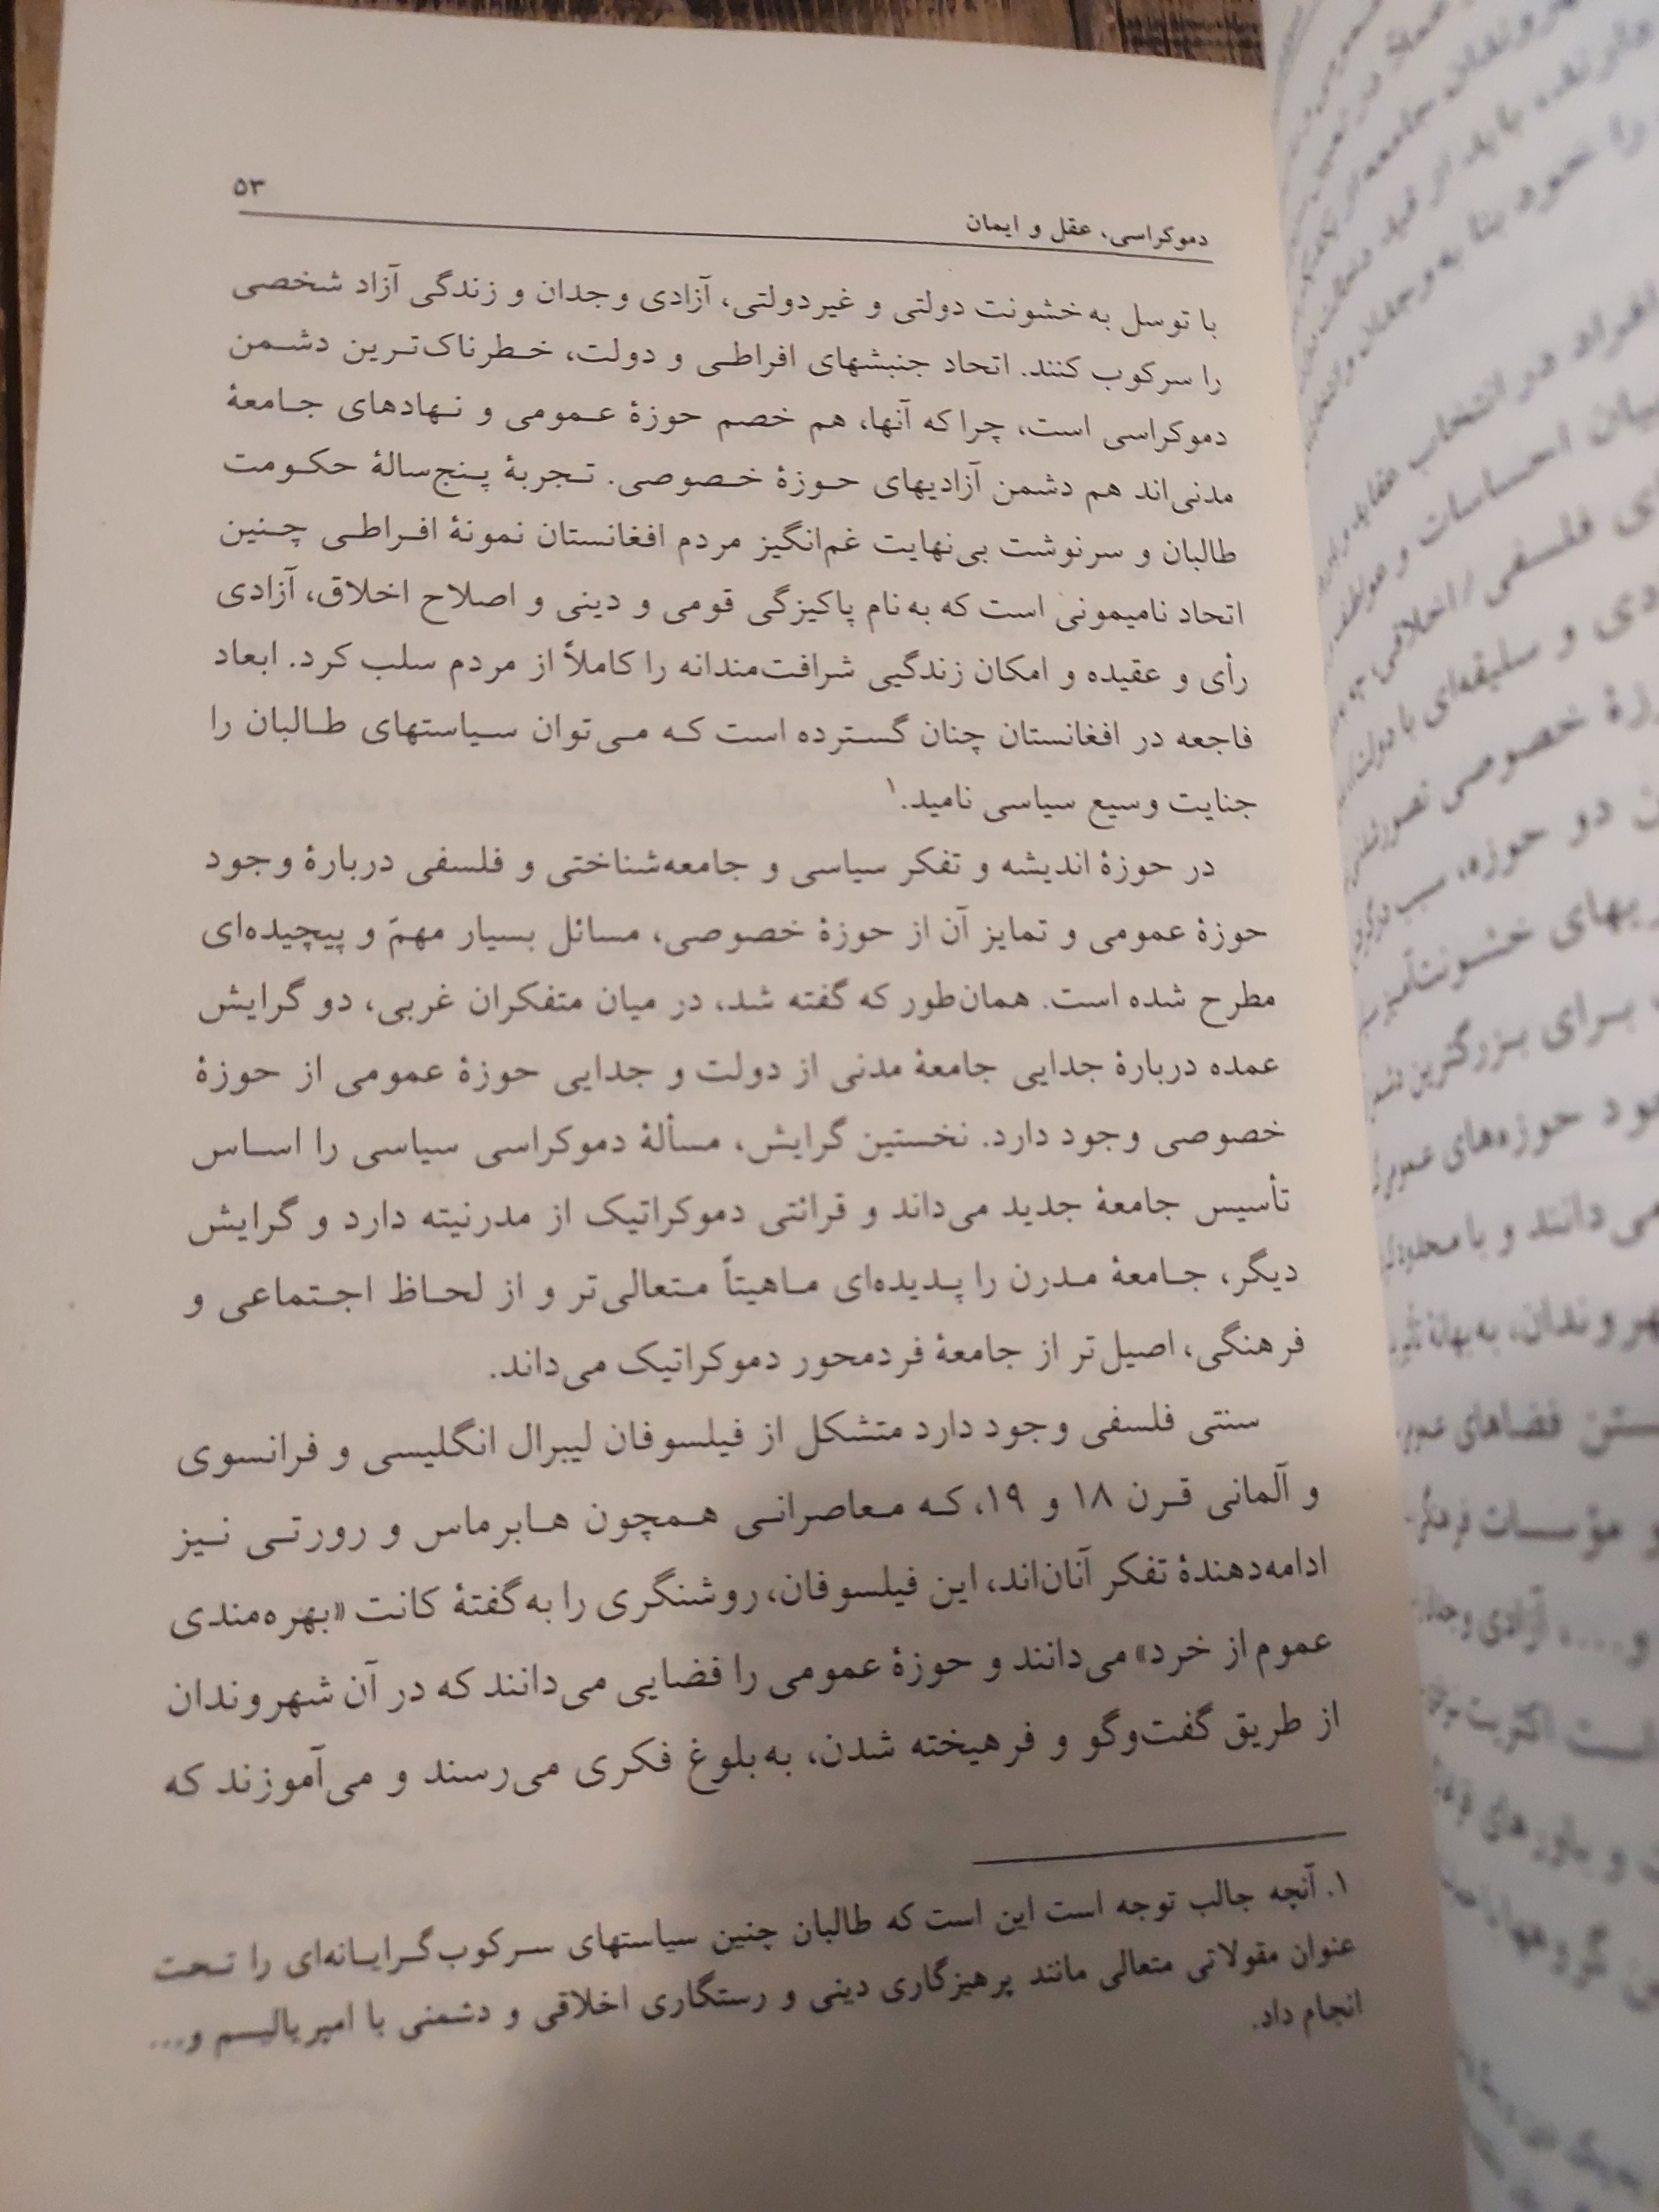 ۵۳
دموکراسی، عقل و ایمان
با توسل به خشونت دولتی و غیردولتی، آزادی وجدان و زندگی آزاد شخصی
را سرکوب کنند. اتحاد جنبشهای افراطی و دولت، خطرناک‌ترین دشمن
دموکراسی است، چراکه آنها، هم خصم حوزهٔ عمومی و نهادهای جامعهٔ
مدنی‌اند هم دشمن آزادیهای حوزهٔ خصوصی. تجربهٔ پنج‌سالهٔ حکومت
طالبان و سرنوشت بی‌نهایت غم‌انگیز مردم افغانستان نمونهٔ افراطی چنین
اتحاد نامیمونی است که به‌نام پاکیزگی قومی و دینی و اصلاح اخلاق، آزادی
رأی و عقیده و امکان زندگیی شرافت‌مندانه را کاملاً از مردم سلب کرد. ابعاد
فاجعه در افغانستان چنان گسترده است که می‌توان سیاستهای طالبان را
جنایت وسیع سیاسی نامید.۱
در حوزهٔ اندیشه و تفکر سیاسی و جامعه‌شناختی و فلسفی دربارهٔ وجود
حوزهٔ عمومی و تمایز آن از حوزهٔ خصوصی، مسائل بسیار مهمّ و پیچیده‌ای
مطرح شده است. همان‌طور که گفته شد، در میان متفکران غربی، دو گرایش
عمده دربارهٔ جدایی جامعهٔ مدنی از دولت و جدایی حوزهٔ عمومی از حوزهٔ
خصوصی وجود دارد. نخستین گرایش، مسألهٔ دموکراسی سیاسی را اساس
تأسیس جامعهٔ جدید می‌داند و قرائتی دموکراتیک از مدرنیته دارد و گرایش
دیگر، جامعهٔ مدرن را پدیده‌ای ماهیتاً متعالی‌تر و از لحاظ اجتماعی و
فرهنگی، اصیل‌تر از جامعهٔ فردمحور دموکراتیک می‌داند.
سنتی فلسفی وجود دارد متشکل از فیلسوفان لیبرال انگلیسی و فرانسوی
و آلمانی قرن ۱۸ و ۱۹، که معاصرانی همچون هابرماس و رورتی نیز
ادامه‌دهندهٔ تفکر آنان‌اند، این فیلسوفان، روشنگری را به‌گفتهٔ کانت «بهره‌مندی
عموم از خرد» می‌دانند و حوزهٔ عمومی را فضایی می‌دانند که در آن شهروندان
از طریق گفت‌وگو و فرهیخته شدن، به‌بلوغ فکری می‌رسند و می‌آموزند که
۱. آنچه جالب توجه است این است که طالبان چنین سیاستهای سرکوب‌گرایانه‌ای را تحت
عنوان مقولاتی متعالی مانند پرهیزگاری دینی و رستگاری اخلاقی و دشمنی با امپریالیسم و...
انجام داد.
را خود بنا به وجدان
افراد در انتخاب عقاید
بیان احساسات و عواطف
فلسفی / اخلاقی
و سلیقه‌ای با دولت
خصوصی
دو حوزه، سبب
خشونت‌آمیز
برای بزرگترین
حوزه‌های عمومی
می‌دانند و با
به بهانهٔ
فضاهای
و مؤسسات
و...، آزادی
است اکثریت
و باورهای